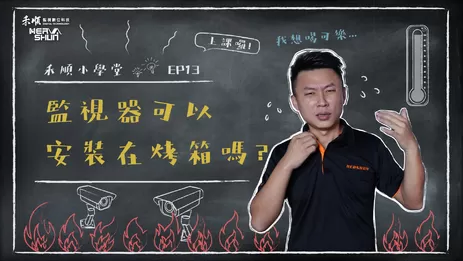 禾順 監視數位科技
HERVA
SHUN
上課囉!
我想喝可樂...
禾順小學堂 EP13
監視器可以
安裝在烤箱嗎?